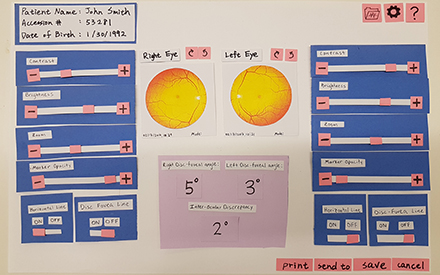 Patient Name: John Smith
Accession # : 53281
Date of Birth : 1/30/1992
?
Contrast
− +
Brightness
− +
Zoom
− +
Marker Opacity
− +
Horizontal Line
ON OFF
Disc-Fovea Line
ON OFF
Right Eye
Left Eye
Right Disc-foveal angle
5°
Left Disc-foveal angle
3°
Inter-Ocular Discrepancy
2°
Contrast
− +
Brightness
− +
Zoom
− +
Marker Opacity
− +
Horizontal Line
ON OFF
Disc-Fovea Line
ON OFF
print send to save cancel